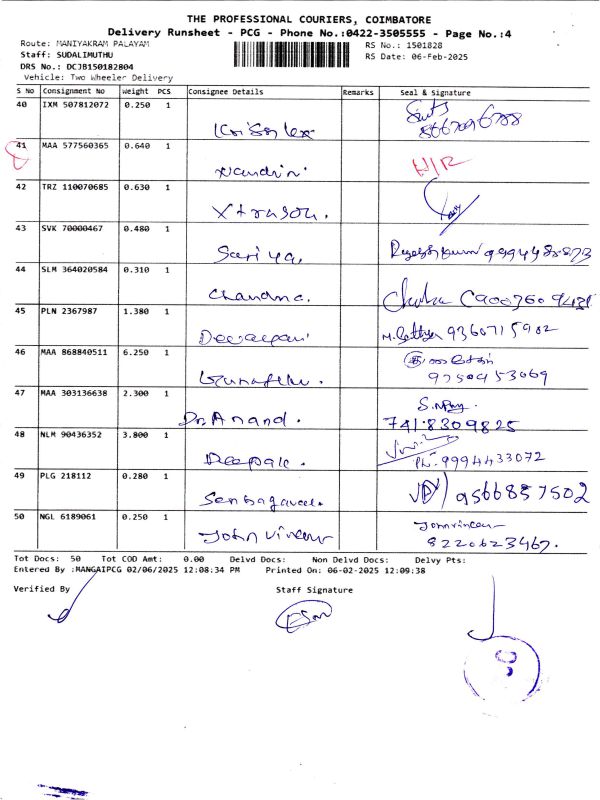 THE PROFESSIONAL COURIERS, COIMBATORE
Delivery Runsheet - PCG - Phone No.:0422-3505555 - Page No.:4
Route: MANIYAKRAM PALAYAM
RS No.: 1501828
Staff: SUDALIMUTHU
RS Date: 06-Feb-2025
DRS No.: DCJB150182804
Vehicle: Two Wheeler Delivery
S No Consignment No Weight PCS Consignee Details Remarks Seal & Signature
40 IXM 507812072 0.250 1
41 MAA 577560365 0.640 1 Nandini H/R
42 TRZ 110070685 0.630 1
43 SVK 70000467 0.480 1 Sariya.
44 SLM 364020584 0.310 1 Chandra.
45 PLN 2367987 1.380 1 9360715902
46 MAA 868840511 6.250 1
9750453069
47 MAA 303136638 2.300 1 Dr. Anand.
7418309825
48 NLM 90436352 3.800 1
Ph: 9994433072
49 PLG 218112 0.280 1 9566857502
50 NGL 6189061 0.250 1 John vincent Johnvincent
8220623467.
Tot Docs: 50 Tot COD Amt: 0.00 Delvd Docs: Non Delvd Docs: Delvy Pts:
Entered By :MANGAIPCG 02/06/2025 12:08:34 PM Printed On: 06-02-2025 12:09:38
Verified By Staff Signature